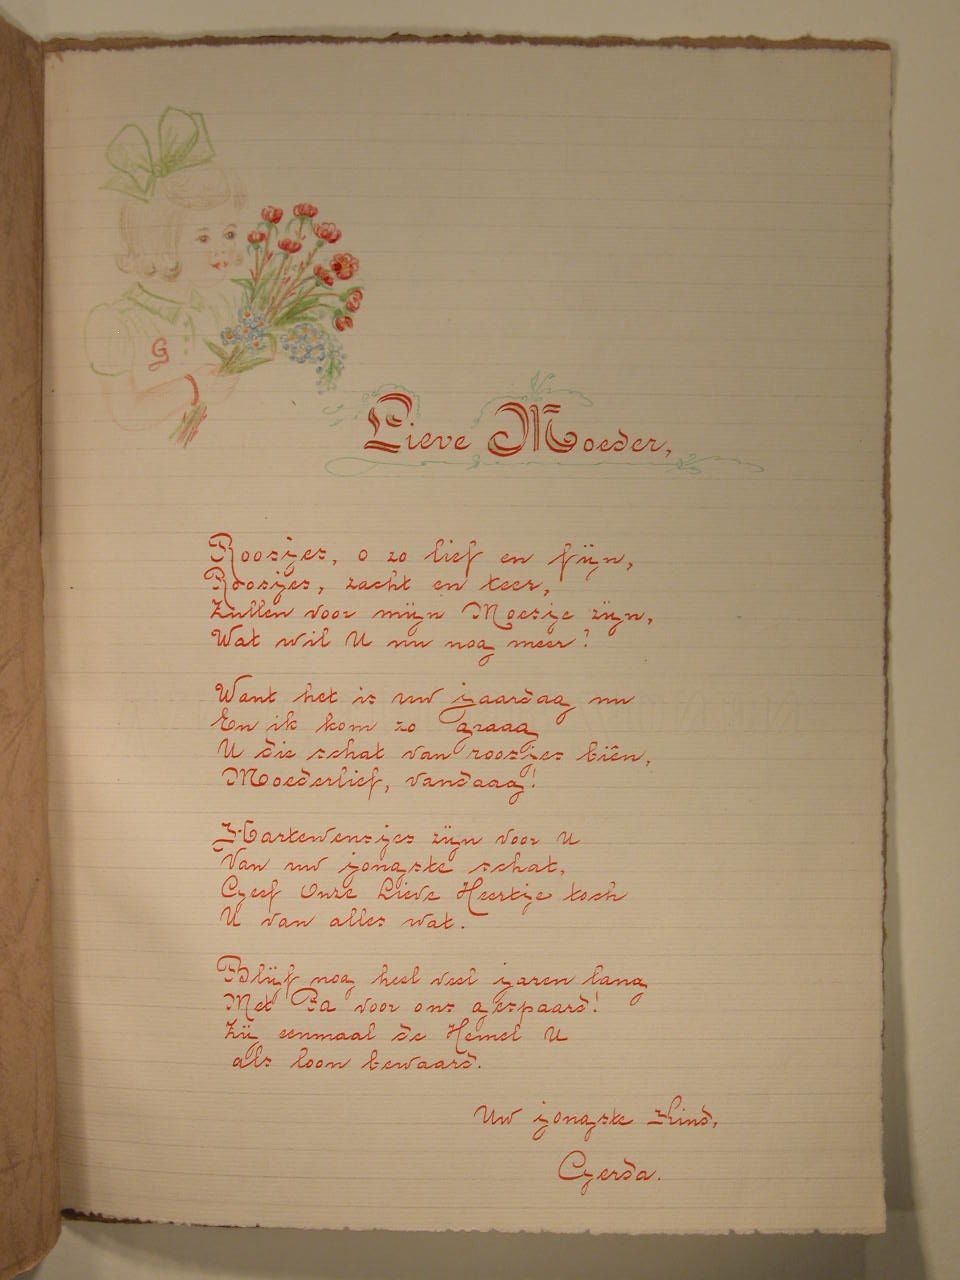 G
Lieve Moeder,
Roosjes, o zo lief en fijn,
Roosjes, zacht en teer,
Zullen voor mijn Moesje zijn,
Wat wil U nu nog meer?
Want het is uw jaardag nu
En ik kom zo graag
U die schat van roosjes biên,
Moederlief, vandaag!
Hartewensjes zijn voor U
Van uw jongste schat,
Geef Onze Lieve Heertje toch
U van alles wat.
Blijf nog heel veel jaren lang
Met Pa voor ons gespaard!
Zij eenmaal de Hemel U
als loon bewaard.
Uw jongste Kind,
Gerda.